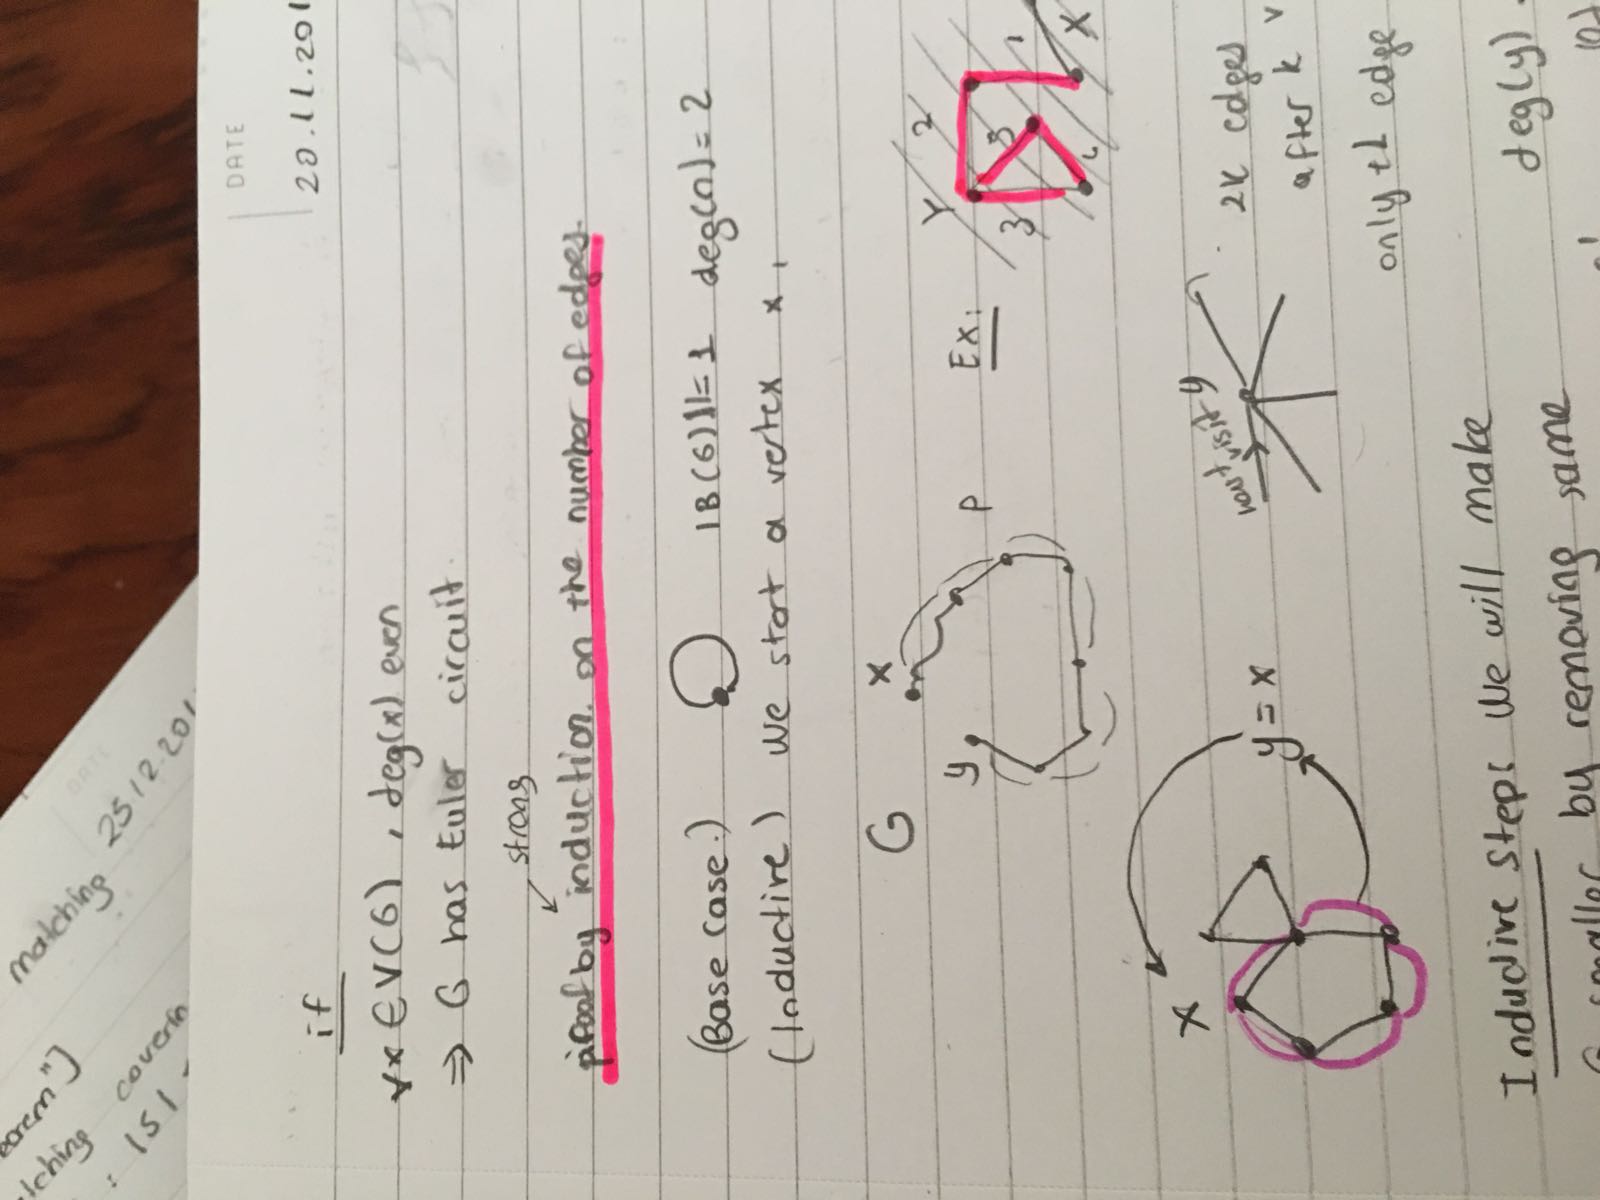 eorem")
matching
tching
covering
25.12.201
: |S|
DATE
DATE
20.11.201
if
∀x ∈ V(G) , deg(x) even
⇒ G has Euler circuit.
strong
proof by induction. on the number of edges.
(Base case.) |B(G)|= 1 deg(n) = 2
(Inductive) We start a vertex x,
G x
y P Ex: Y 2
3 5 1
x
x
y = x
visit y
2k edges
after k v
only +1 edge
Inductive Step: We will make
deg(y)
G smaller by removing same